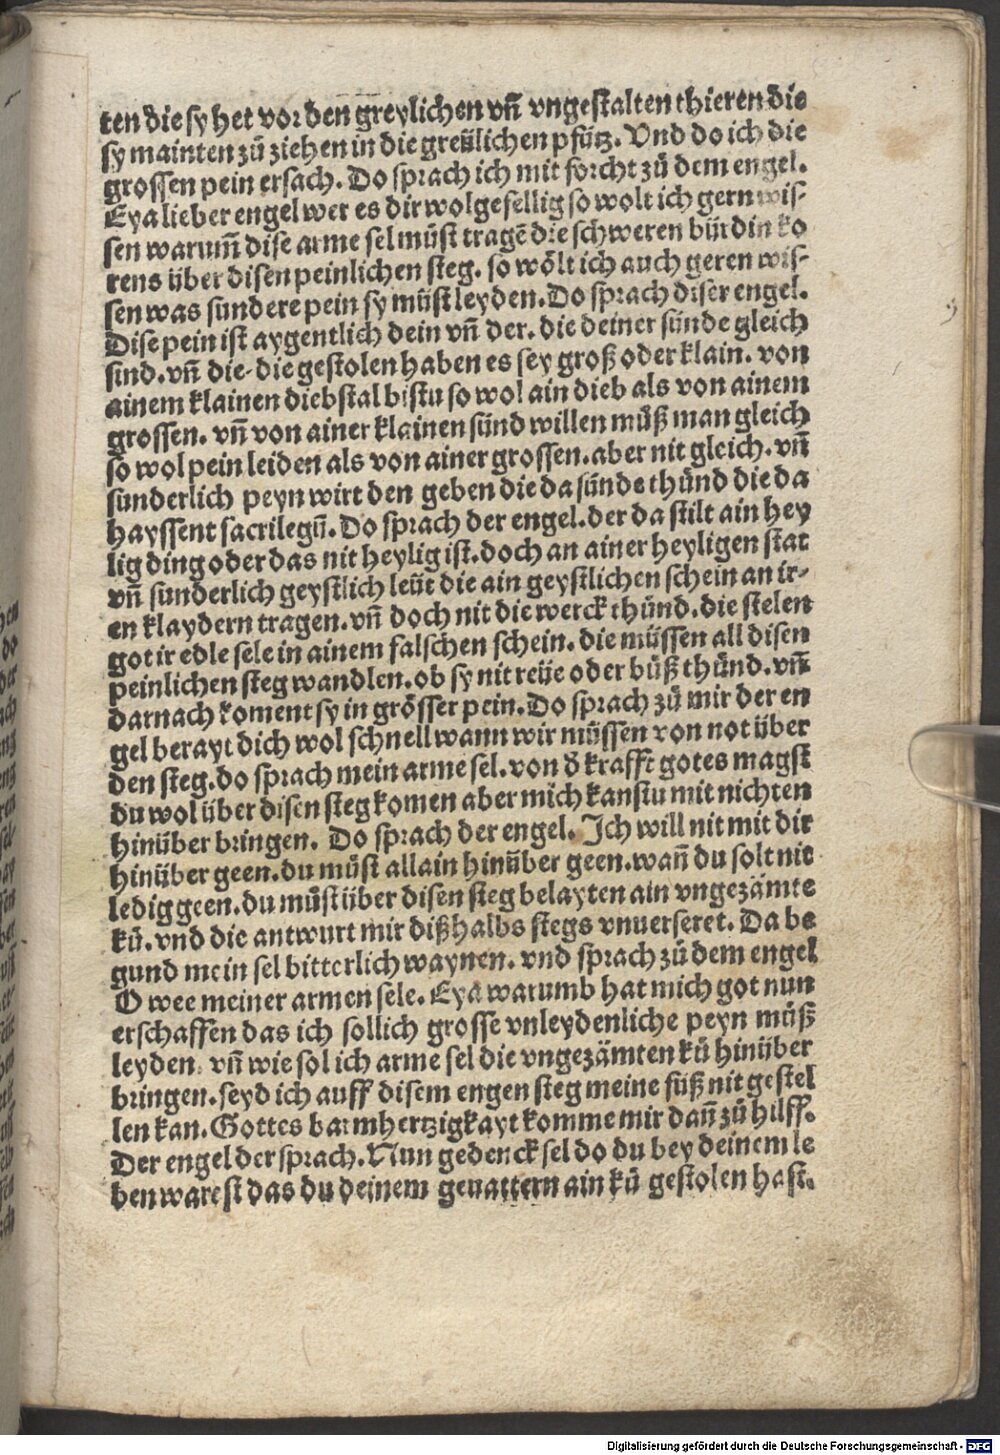 ten die sy het vor den greylichen vñ vngestalten thieren die
sy mainten zů ziehen in die greülichen pfütz. Vnd do ich die
grossen pein ersach. Do sprach ich mit forcht zů dem engel.
Eya lieber engel wer es dir wolgefellig so wolt ich gern wis-
sen warum̃ dise arme sel můst tragẽ die schweren bürdin ko
rens über disen peinlichen steg. so wölt ich auch geren wis-
sen was sundere pein sy müst leyden. Do sprach diser engel.
Dise pein ist aygentlich dein vñ der. die deiner sünde gleich
sind. vñ die- die gestolen haben es sey groß oder klain. von
ainem klainen diebstal bistu so wol ain dieb als von ainem
grossen. vñ von ainer klainen sünd willen můß man gleich
so wol pein leiden als von ainer grossen. aber nit gleich. vñ
sunderlich peyn wirt den geben die da sünde thůnd die da
hayssent sacrilegii. Do sprach der engel. der da stilt ain hey
lig ding oder das nit heylig ist. doch an ainer heyligen stat
vñ sunderlich geystlich leüt die ain geystlichen schein an ir-
en klaydern tragen. vñ doch nit die werck thůnd. die stelen
got ir edle sele in ainem falschen schein. die müssen all disen
peinlichen steg wandlen. ob sy nit reüe oder bůß thůnd. vñ
darnach koment sy in grösser pein. Do sprach zů mir der en
gel berayt dich wol schnell wann wir müssen von not über
den steg. do sprach mein arme sel. von d̕ krafft gotes magst
du wol über disen steg komen aber mich kanstu mit nichten
hinüber bringen. Do sprach der engel. Ich will nit mit dir
hinüber geen. du můst allain hinüber geen. wañ du solt nit
ledig geen. du můst über disen steg belayten ain vngezämte
ků. vnd die antwurt mir dißhalbs stegs vnuerseret. Da be
gund mein sel bitterlich waynen. vnd sprach zů dem engel
O wee meiner armen sele. Eya warumb hat mich got nun
erschaffen das ich sollich grosse vnleydenliche peyn můß
leyden. vñ wie sol ich arme sel die vngezämten ků hinüber
bringen. seyd ich auff disem engen steg meine füß nit gestel
len kan. Gottes barmhertzigkayt komme mir dañ zů hilff.
Der engel der sprach. Nun gedenck sel do du bey deinem le
ben warest das du deinem geuattern ain ků gestolen hast.
Digitalisierung gefördert durch die Deutsche Forschungsgemeinschaft - DFG